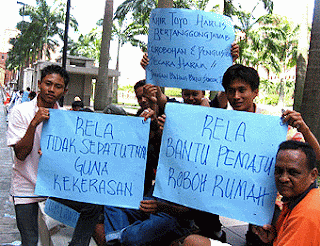 KHIR TOYO HARUS
BERTANGGONGJAWAB
ROBOHAN & PENGUSIRAN
SECARA HARAM //
RELA
TIDAK SEPATUTNYA
GUNA
KEKERASAN
RELA
BANTU PEMAJU
ROBOH RUMAH